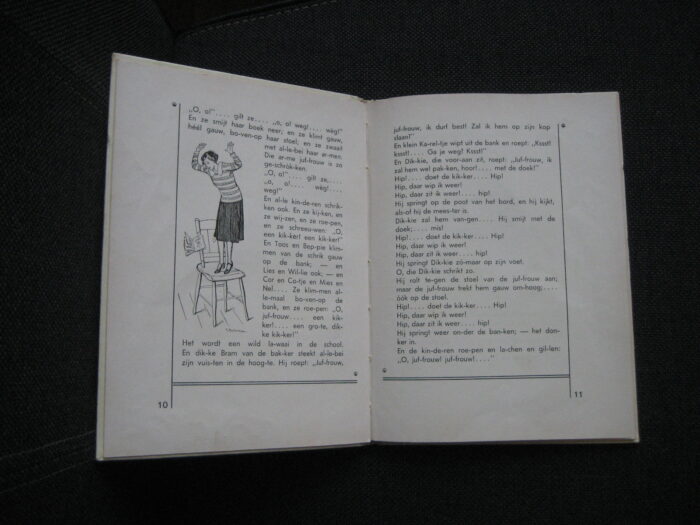 „O, o!".... gilt ze.... „o, o! weg!.... wèg!"
En ze smijt haar boek neer; en ze klimt gauw,
héél gauw, bo-ven-op haar stoel; en ze zwaait
met al-le-bei haar ar-men.
Die ar-me juf-frouw is zo
ge-schrok-ken.
„O, o!".... gilt ze,....
„o, o!.... wèg!....
weg!"
En al-le kin-de-ren schrik-
ken ook. En ze kij-ken, en
ze wij-zen, en ze roe-pen,
en ze schreeu-wen: „O,
een kik-ker! een kik-ker!"
En Toos en Bep-pie klim-
men van de schrik gauw
op de bank; — en
Lies en Wil-lie ook; — en
Cor en Co-tje en Mies en
Nel.... Ze klim-men al-
le-maal bo-ven-op de
bank, en ze roe-pen: „O,
juf-frouw!.... een kik-
ker!.... een gro-te, dik-
ke kik-ker!"
Het wordt een wild la-waai in de school.
En dik-ke Bram van de bak-ker steekt al-le-bei
zijn vuis-ten in de hoog-te. Hij roept: „Juf-frouw,
10
juf-frouw, ik durf best! Zal ik hem op zijn kop
slaan?"
En klein Ka-rel-tje wipt uit de bank en roept: „Kssst!
kssst!.... Ga je weg! Kssst!"
En Dik-kie, die voor-aan zit, roept: „Juf-frouw, ik
zal hem wel pak-ken, hoor!.... met de doek!"
Hip!.... doet de kik-ker.... Hip!
Hip, daar wip ik weer!
Hip, daar zit ik weer!.... hip!
Hij springt op de poot van het bord, en hij kijkt,
als-of hij de mees-ter is.
Dik-kie zal hem van-gen.... Hij smijt met de
doek;.... mis!
Hip!.... doet de kik-ker.... Hip!
Hip, daar wip ik weer!
Hip, daar zit ik weer!.... hip!
Hij springt Dik-kie zó-maar op zijn voet.
O, die Dik-kie schrikt zo.
Hij rolt te-gen de stoel van de juf-frouw aan;
maar de juf-frouw trekt hem gauw om-hoog;....
óók op de stoel.
Hip!.... doet de kik-ker.... Hip!
Hip, daar wip ik weer!
Hip, daar zit ik weer!.... hip!
Hij springt weer on-der de ban-ken; — het don-
ker in.
En de kin-de-ren roe-pen en la-chen en gil-len:
„O, juf-frouw! juf-frouw!...."
11